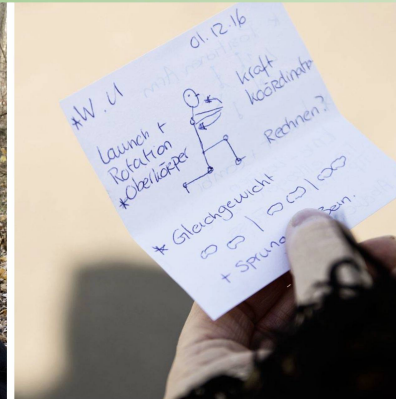 01.12.16
*W.U
Launch +
Rotation
*Oberkörper
Kraft
Koordinat
Rechnen?
* Gleichgewicht
+ Sprung Bein.